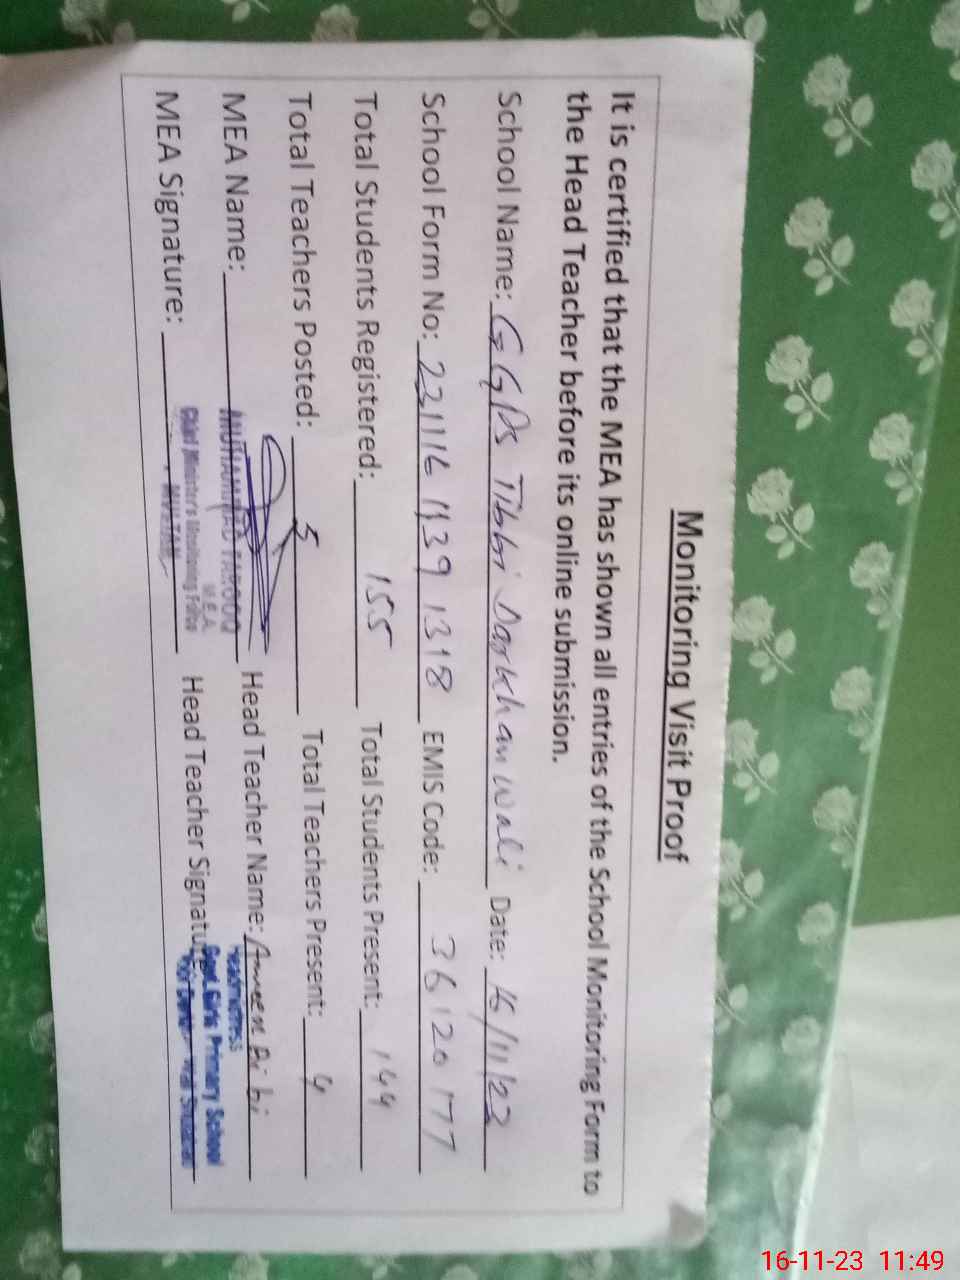 Monitoring Visit Proof
It is certified that the MEA has shown all entries of the School Monitoring Form to
the Head Teacher before its online submission.
School Name: GGPS Tibbi Darkhan Wali Date: 16/11/23
School Form No: 231116 1139 1318 EMIS Code: 36120177
Total Students Registered: 155 Total Students Present: 144
Total Teachers Posted: 5 Total Teachers Present: 4
MEA Name: MUHAMMAD FAROOQ Head Teacher Name: Ameer Bi bi
M.E.A. Headmistress
MEA Signature: Chief Minister's Monitoring Force Head Teacher Signature: Govt. Girls Primary School
MULTAN
16-11-23 11:49